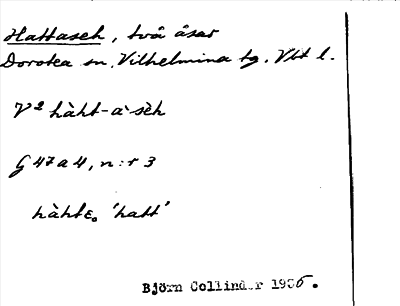 Hattaseh, två åsar
Dorotea sn, Vilhelmina tg. Vbt l.
V² hàht-a`sèh
G 47 a 4, n:r 3
hàhtɛ。 'hatt'
Björn Collinder 1936.